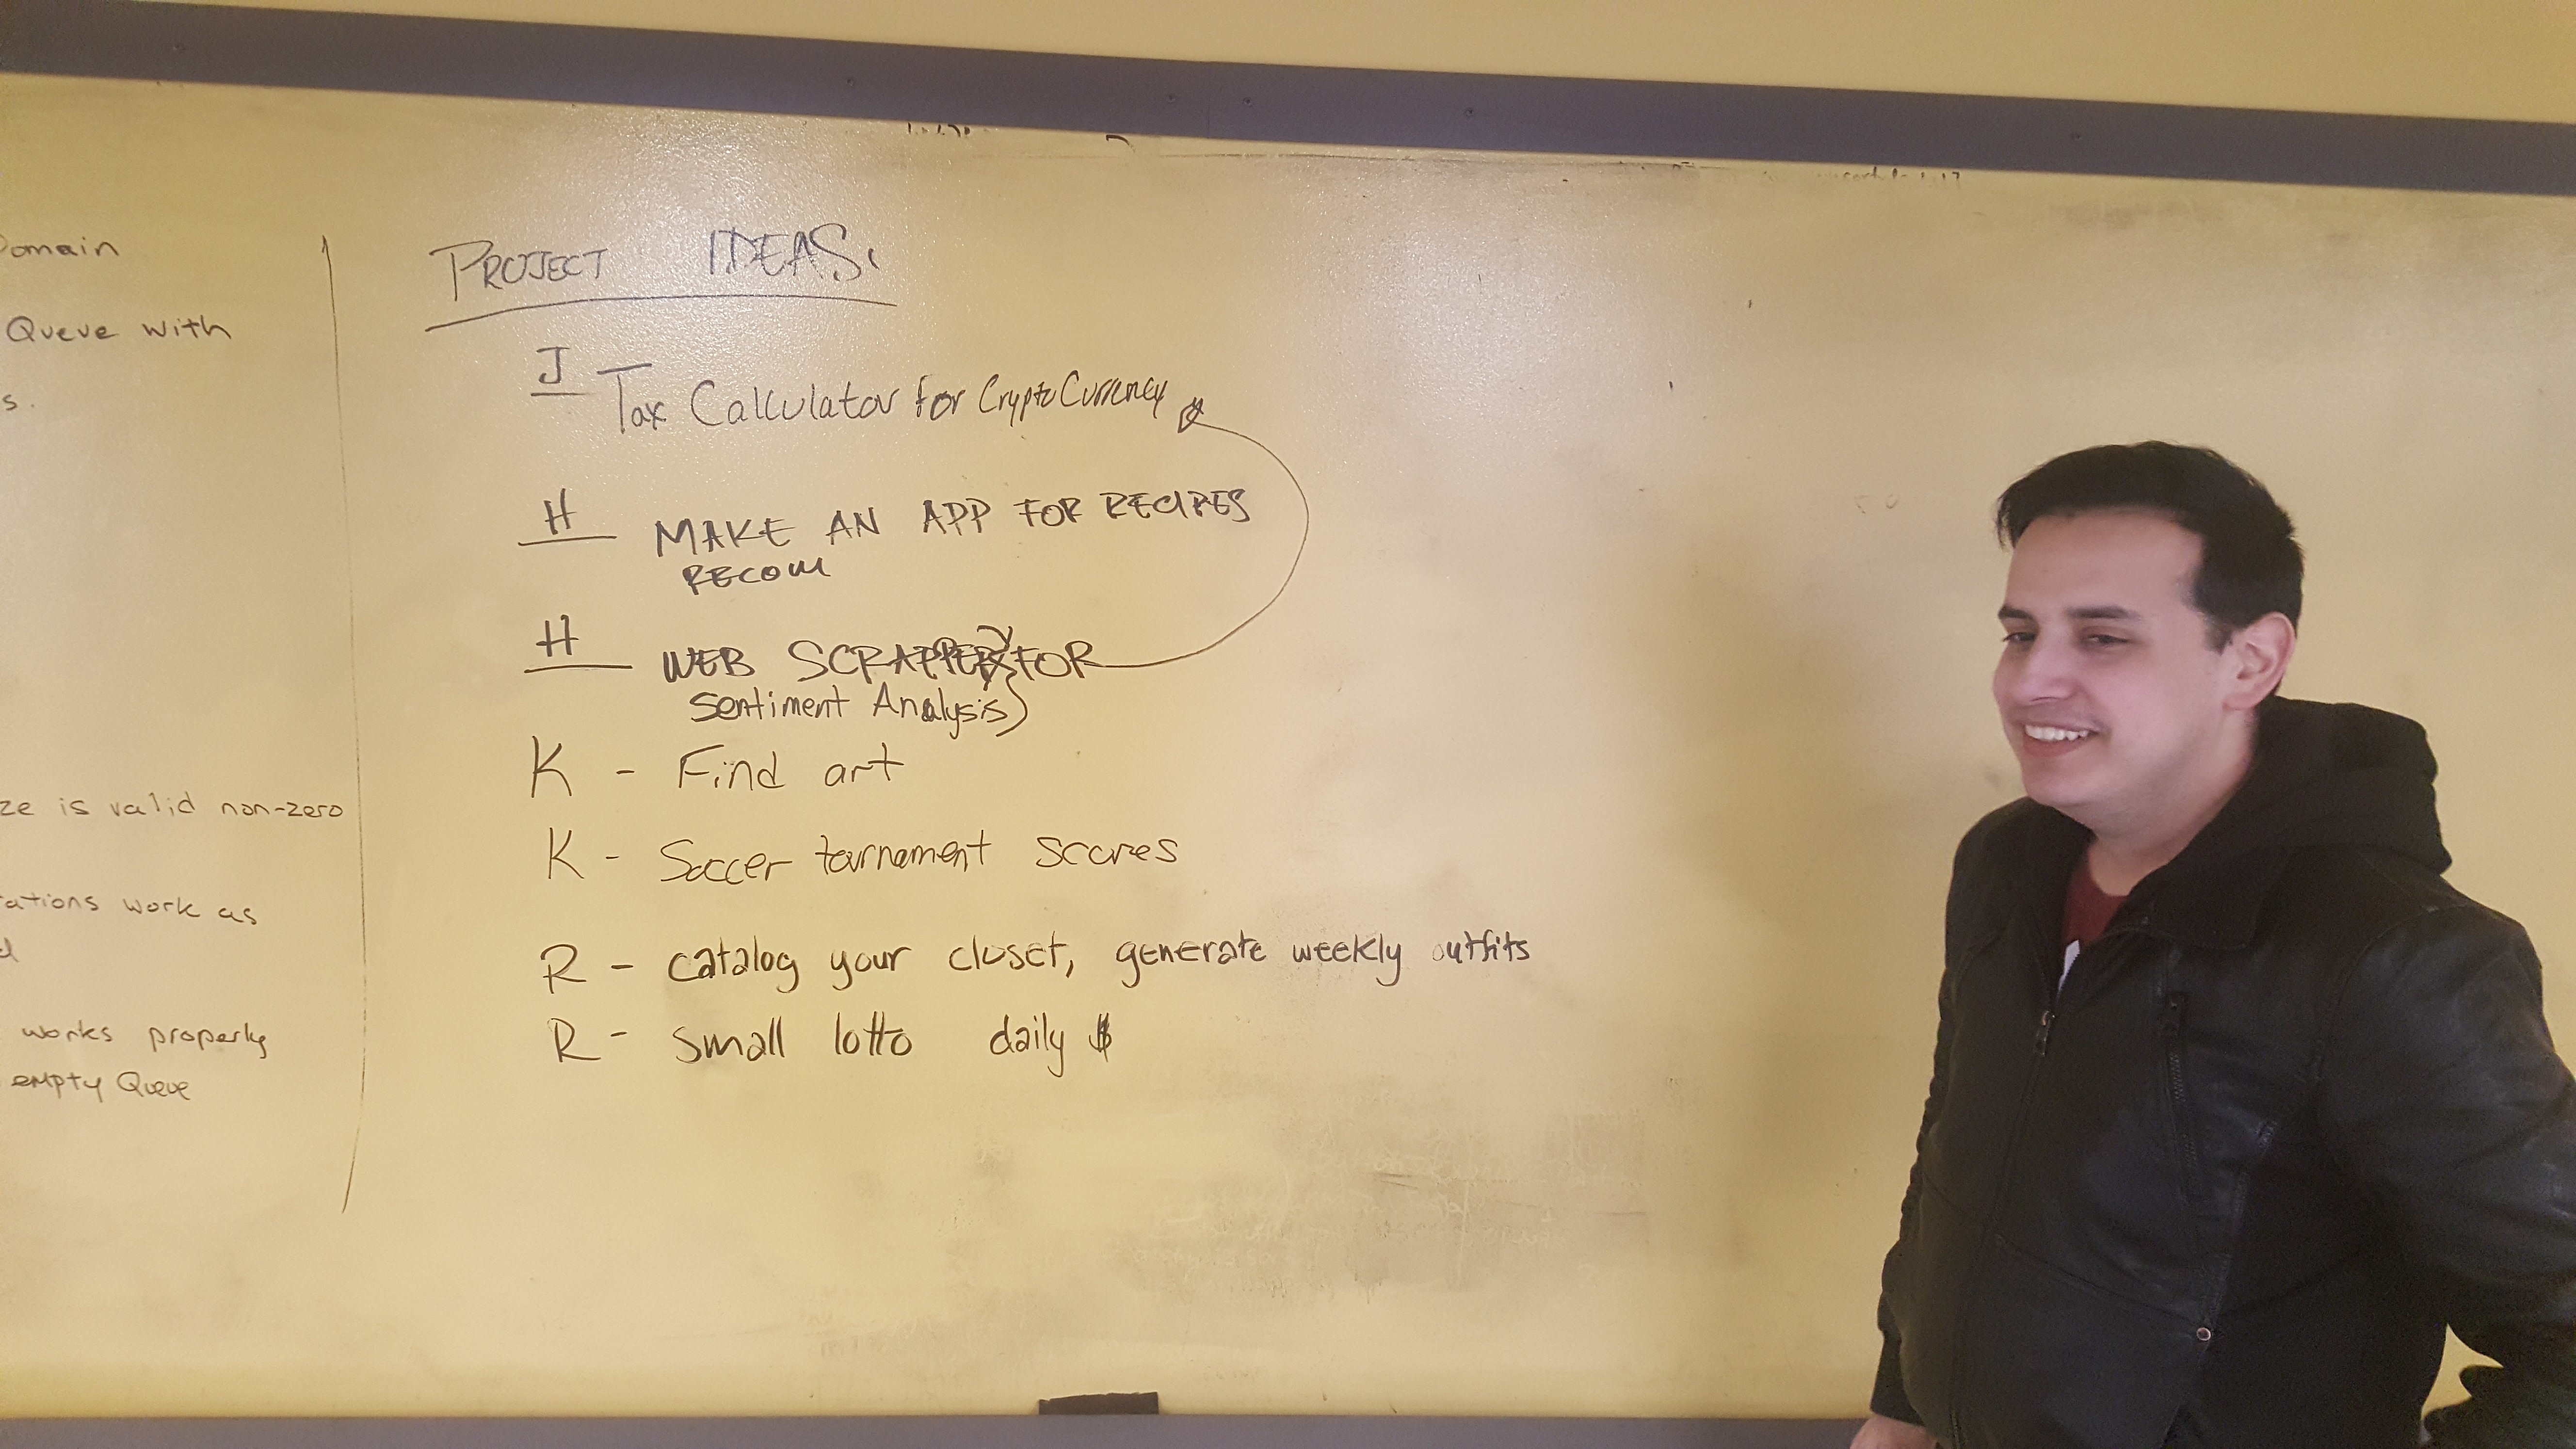 Domain
Queue with
s.
ze is valid non-zero
ations work as
d
works properly
empty Queue
PROJECT IDEAS.
J Tax Calculator for CryptoCurrency
H MAKE AN APP FOR RECIPES
RECOM
H WEB SCRAPPER FOR
Sentiment Analysis)
K - Find art
K - Soccer tournament scores
R - catalog your closet, generate weekly outfits
R - small lotto daily $